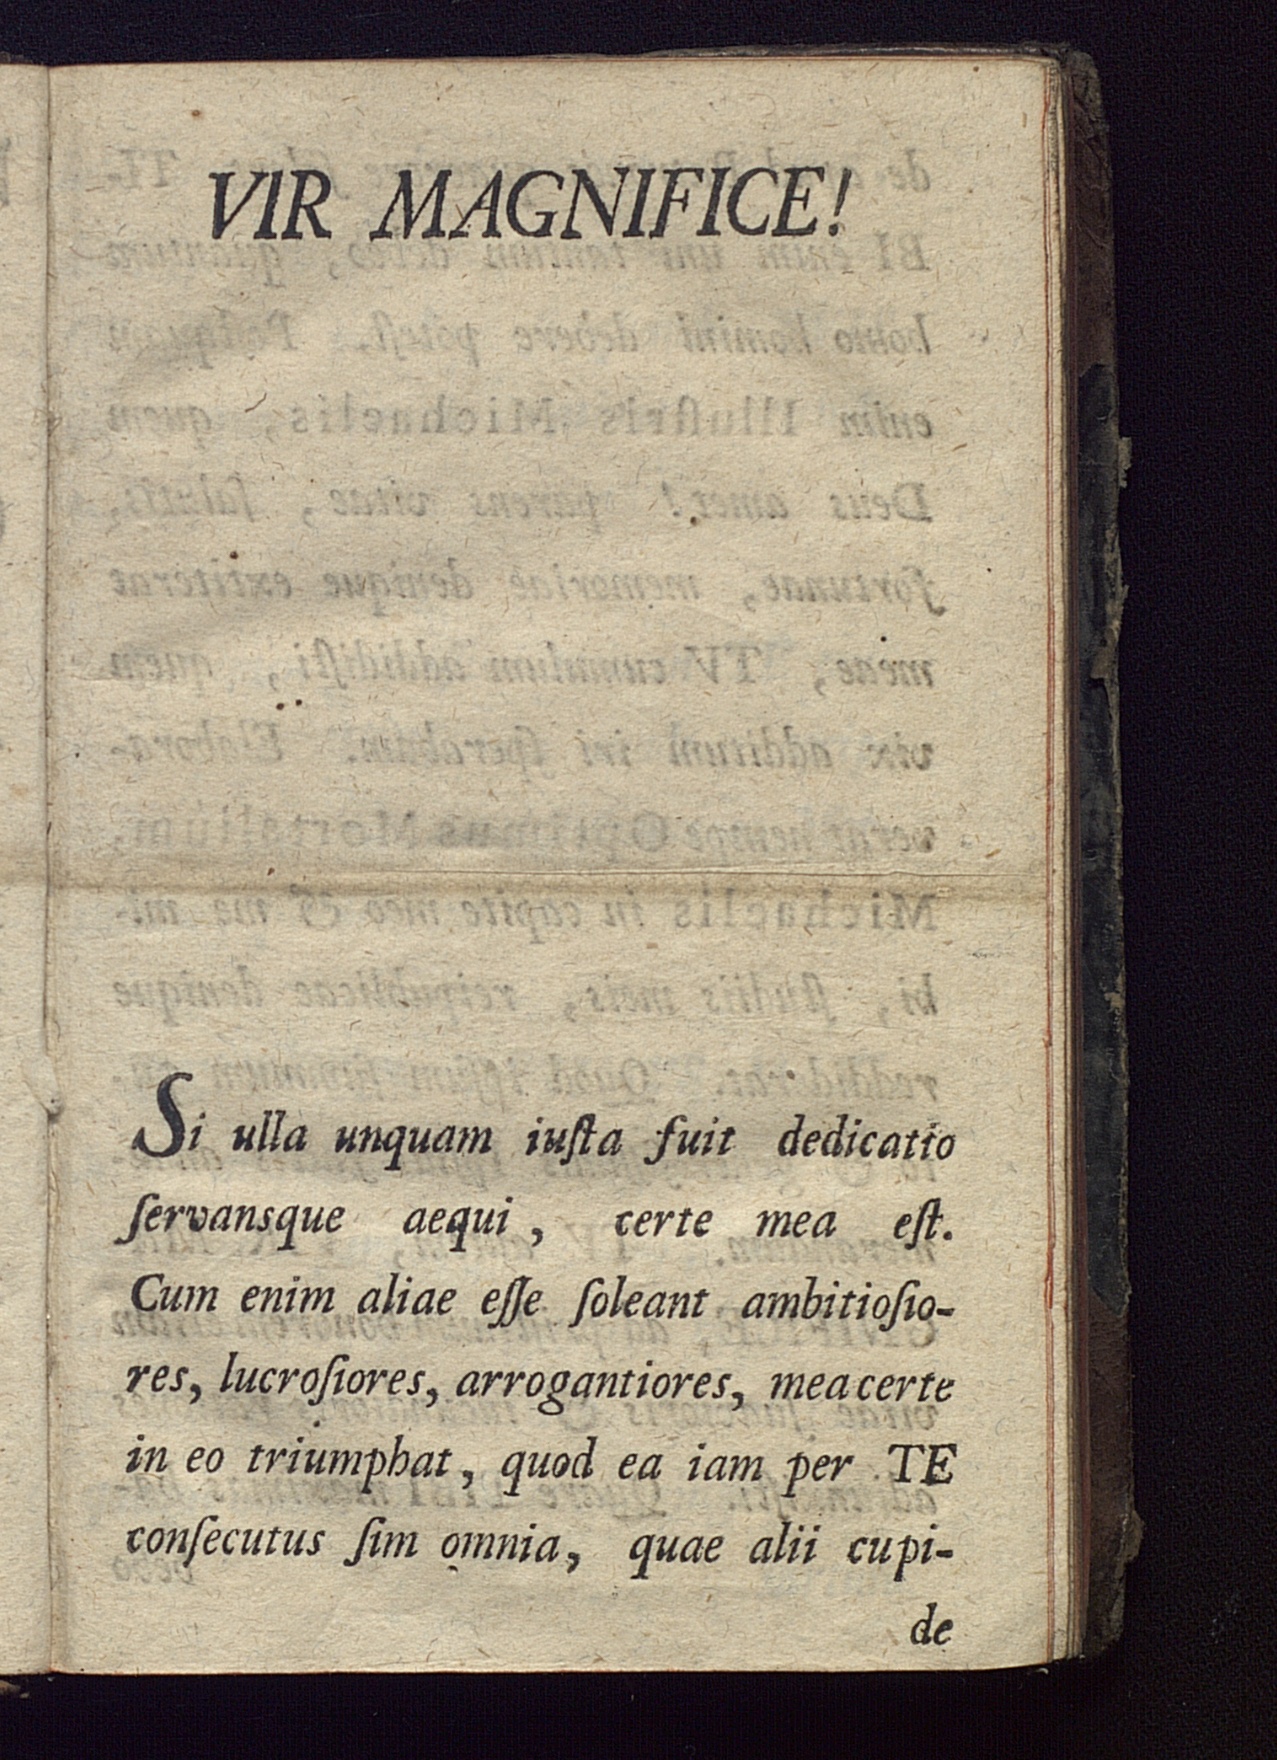 VIR MAGNIFICE!
Si ulla unquam iuſta fuit dedicatio
ſervansque aequi, certe mea eſt.
Cum enim aliae eſſe ſoleant ambitioſio-
res, lucroſiores, arrogantiores, mea certe
in eo triumphat, quod ea iam per TE
conſecutus ſim omnia, quae alii cupi-
de